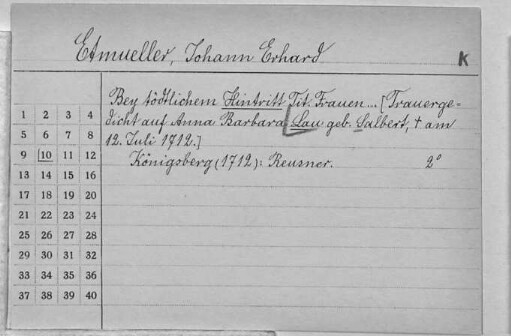 Etmueller, Johann Erhard
K
Bey tödtlichem Hintritt Tit. Frauen... [Trauerge-
dicht auf Anna Barbara Lau geb. Salbert, † am
12. Juli 1712.]
Königsberg (1712): Reusner. 2°
1 2 3 4
5 6 7 8
9 10 11 12
13 14 15 16
17 18 19 20
21 22 23 24
25 26 27 28
29 30 31 32
33 34 35 36
37 38 39 40